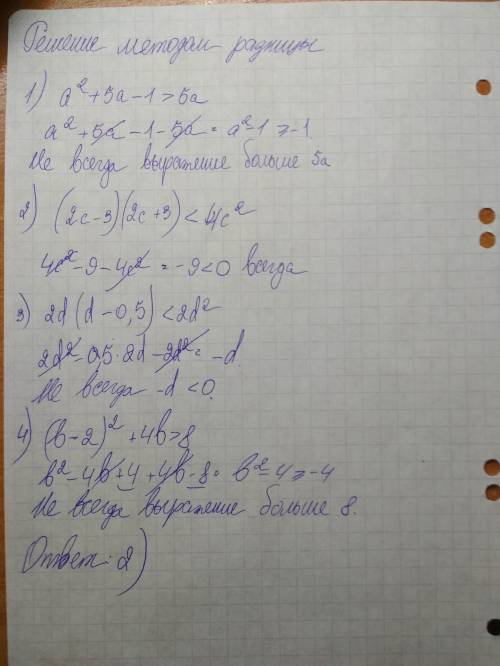 Решение методом разницы
1) a² + 5a - 1 > 5a
a² + 5a - 1 - 5a = a² - 1 ⩾ -1
Не всегда выражение больше 5a
2) (2c - 3)(2c + 3) < 4c²
4c² - 9 - 4c² = -9 < 0 всегда
3) 2d (d - 0,5) < 2d²
2d² - 0,5 · 2d - 2d² = -d
Не всегда -d < 0.
4) (b - 2)² + 4b > 8
b² - 4b + 4 + 4b - 8 = b² - 4 ⩾ -4
Не всегда выражение больше 8.
Ответ: 2)